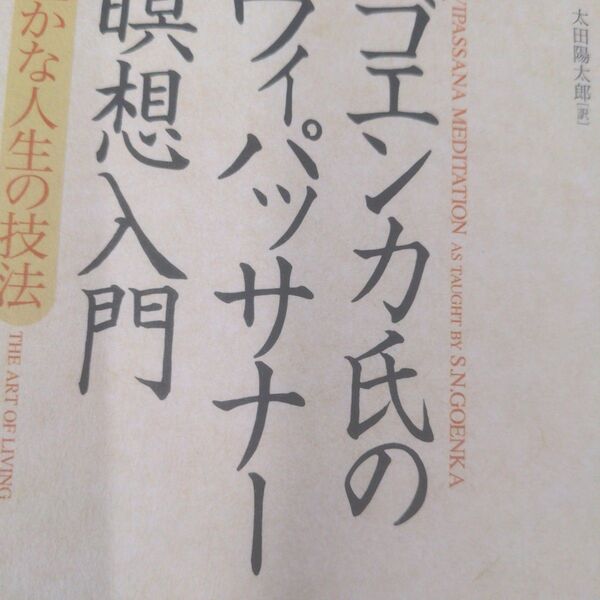 太田陽太郎[訳]
VIPASSANA MEDITATION AS TAUGHT BY S.N.GOENKA
ゴエンカ氏の
ヴィパッサナー
瞑想入門
かな人生の技法
THE ART OF LIVING